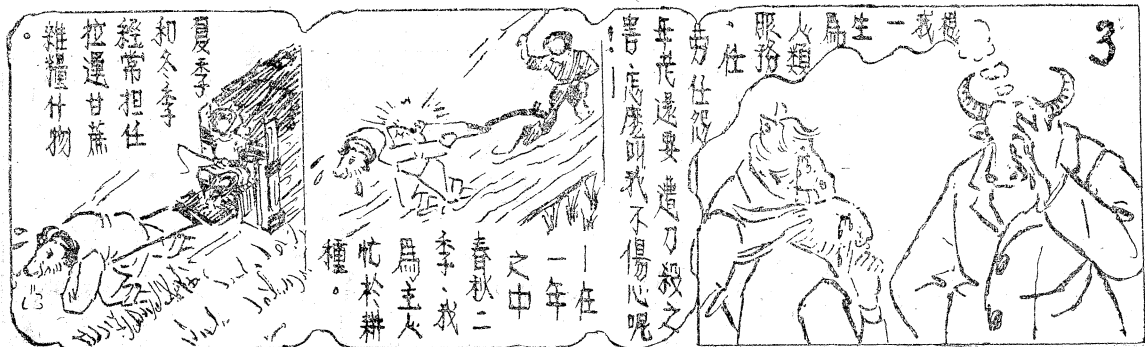 3
想我一生為
人類
服務
、任
勞任怨
年老還要遭刀殺之
害、怎麼叫我不傷心呢
！——
—在
一年
之中
春秋二
季、我
為主人
忙於耕
種。
夏季
和冬季
經常担任
拉運甘蔗
雜糧什物
。